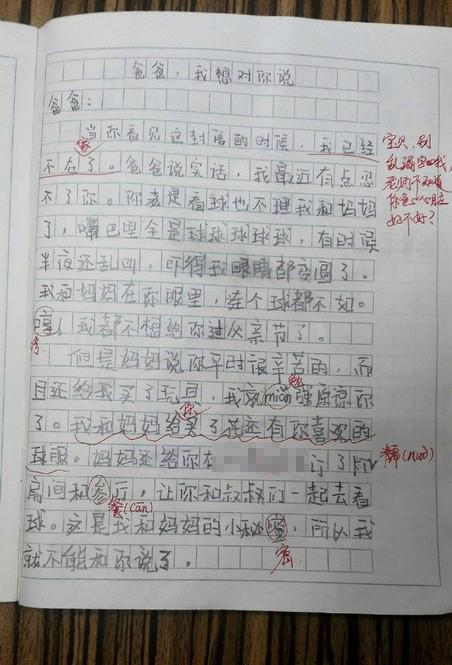 爸爸，我想对你说
爸爸：
当你看见这封信的时候，我已经
不在了。爸爸说实话，我最近有点忍
不了你。你老是看球也不理我和妈妈
了，嘴巴里全是球球球球球。有时候
半夜还乱叫，吓得我眼睛都变圆了。
我和妈妈在你眼里，连个球都不如。
我都不想给你过父亲节了。
但是妈妈说你平时很辛苦的，而
且还给我买了玩具，我就mian强原谅你
勉
了。我和妈妈给买了花还有你喜欢的
你
球服。妈妈还给你在 订了
房间和参厅，让你和叔叔们一起去看
餐(cān)
球。这是我和妈妈的小秘蜜，所以我
密
就不能和你说了。
宝贝，别